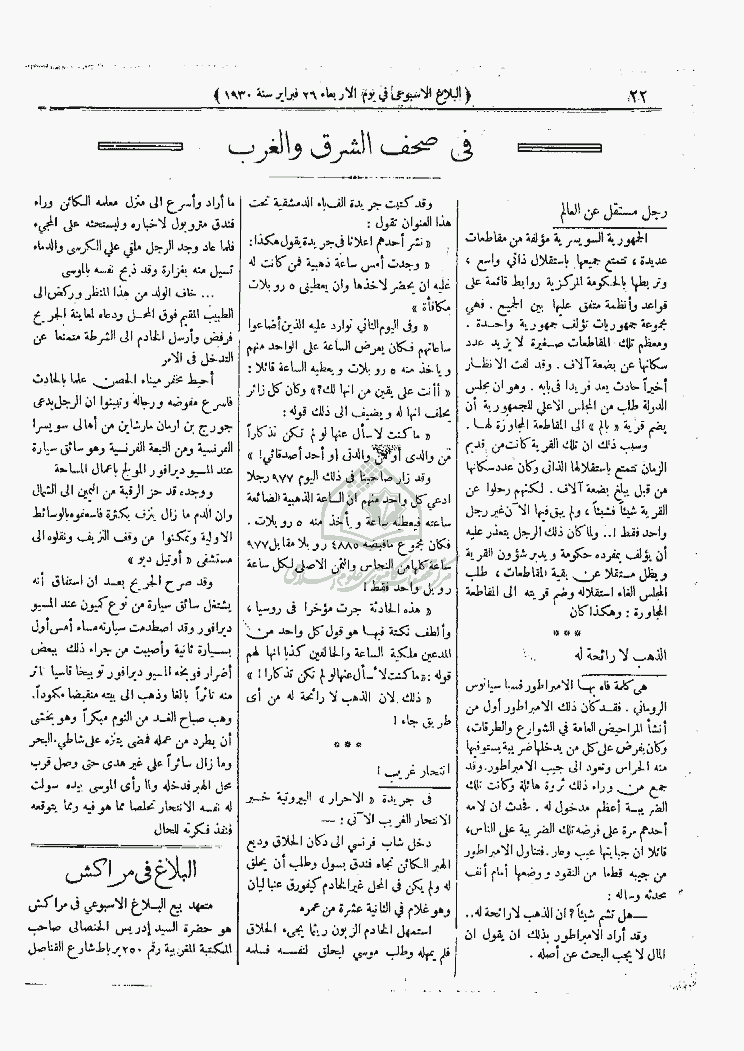 ٢٢
﴿ البلاغ الاسبوعي في يوم الاربعاء ٢٦ فبراير سنة ١٩٣٠ ﴾
في صحف الشرق والغرب
رجل مستقل عن العالم
الجمهورية السويسرية مؤلفة من مقاطعات
عديدة ، تتمتع جميعها باستقلال ذاتي واسع ،
وتربطها بالحكومة المركزية روابط قائمة على
قواعد وأنظمة متفق عليها بين الجميع . فهي
مجموعة جمهوريات تؤلف جمهورية واحدة .
ومعظم تلك المقاطعات صغيرة لا يزيد عدد
سكانها عن بضعة آلاف . وقد لفت الانظار
أخيراً حادث يعد فريدا في بابه . وهو ان مجلس
الدولة طلب من المجلس الاعلى للجمهورية أن
يضم قرية « بالم » الى المقاطعة المجاورة لها .
وسبب ذلك ان تلك القرية كانت من قديم
الزمان تتمتع باستقلالها الذاتي وكان عدد سكانها
من قبل يبلغ بضعة آلاف . لكنهم رحلوا عن
القرية شيئاً فشيئاً ، ولم يبق فيها الآن غير رجل
واحد فقط ا . . ولما كان ذلك الرجل يتعذر عليه
أن يؤلف بمفرده حكومة ويدير شؤون القرية
ويظل مستقلا عن بقية المقاطعات ، طلب
المجلس الغاء استقلاله وضم قريته الى المقاطعة
المجاورة : وهكذا كان
* * *
الذهب لا رائحة له
هي كلمة فاه بها الامبراطور فسبا سيانوس
الروماني . فقد كان ذلك الامبراطور أول من
أنشأ المراحيض العامة في الشوارع والطرقات ،
وكان يفرض على كل من يدخلها ضريبة يستوفيها
منه الحراس وتعود الى جيب الامبراطور . وقد
جمع من وراء ذلك ثروة هائلة وكانت تلك
الضريبة أعظم مدخول له . فحدث ان لامه
أحدهم مرة على فرضه تلك الضريبة على الناس ،
قائلا ان جبايتها عيب وعار . فتناول الامبراطور
من جيبه قطعا من النقود ووضعها أمام أنف
محدثه وسأله :
— هل تشم شيئاً ؟ ان الذهب لا رائحة له . .
وقد أراد الامبراطور بذلك ان يقول ان
المال لا يجب البحث عن أصله .
وقد كتبت جريدة الف باء الدمشقية تحت
هذا العنوان تقول :
« نشر أحدهم اعلانا في جريدة يقول هكذا :
« وجدت أمس ساعة ذهبية فمن كانت له
عليه ان يحضر لاخذها وان يعطيني ٥ روبلات
مكافأة »
« وفي اليوم الثاني توارد عليه الذين أضاعوا
ساعاتهم فكان يعرض الساعة على الواحد منهم
وياخذ منه ٥ روبلات ويعطيه الساعة قائلا :
« أأنت على يقين من انها لك ؟» وكان كل زائر
يحلف انها له ويضيف الى ذلك قوله :
« ما كنت لأسأل عنها لو لم تكن تذكاراً
من والدي أو من والدتي ( أو أحد أصدقائي ! »
وقد زار صاحبنا في ذلك اليوم ٩٧٧ رجلا
ادعى كل واحد منهم ان الساعة الذهبية الضائعة
ساعته فيعطيه ساعة ويأخذ منه ٥ روبلات .
فكان مجموع ما قبضه ٤٨٨٥ روبلا مقابل ٩٧٧
ساعة كلها من النحاس والثمن الاصلي لكل ساعة
روبل واحد فقط !
« هذه الحادثة جرت مؤخرا في روسيا ،
وألطف نكتة فيها هو قول كل واحد من
المدعين ملكية الساعة والحالفين كذبا انها لهم
قوله : « ما كنت لأسأل عنها لو لم تكن تذكارا ! »
« ذلك لان الذهب لا رائحة له من أي
طريق جاء !
* * *
انتحار غريب !
في جريدة « الاحرار » البيروتية خبر
الانتحار الغريب الآتي : —
دخل شاب فرنسي الى دكان الحلاق وديع
الهبر الكائن تجاه فندق بسول وطلب أن يحلق
له ولم يكن في المحل غير الخادم كيفورق عنتابليان
وهو غلام في الثانية عشرة من عمره
استمهل الخادم الزبون ريثما يجيء الحلاق
فلم يمهله وطلب موسى ليحلق لنفسه فسلمه
ما أراد وأسرع الى منزل معلمه الكائن وراء
فندق متروبول لاخباره وليستحثه على المجيء
فلما عاد وجد الرجل ملقي على الكرسي والدماء
تسيل منه بغزارة وقد ذبح نفسه بالموسى
... خاف الولد من هذا المنظر وركض الى
الطبيب المقيم فوق المحل ودعاه لمعاينة الجريح
فرفض وأرسل الخادم الى الشرطة متمنعا عن
التدخل في الامر
أحيط مخفر ميناء الحصن علما بالحادث
فاسرع مفوضه ورجاله وتبينوا ان الرجل يدعى
جورج بن ارمان مارشاين من أهالى سويسرا
الفرنسية ومن التبعة الفرنسية وهو سائق سيارة
عند المسيو ديرافور المولج باعمال المساحة
ووجده قد حز الرقبة من اليمين الى الشمال
وان الدم ما زال ينزف بكثرة فاسعفوه بالوسائط
الاولية وتمكنوا من وقف النزيف ونقلوه الى
مستشفى « أوتيل ديو »
وقد صرح الجريح بعد ان استفاق أنه
يشتغل سائق سيارة من نوع كميون عند المسيو
ديرافور وقد اصطدمت سيارته مساء أمس أول
بسيارة ثانية وأصيبت من جراء ذلك ببعض
أضرار فوبخه المسيو ديرافور توبيخا قاسيا اثر
منه تاثراً بالغا وذهب الى بيته منقبضا مكموداً .
وهب صباح الغد من النوم مبكراً وهو يخشى
أن يطرد من عمله فمضى يتنزه على شاطي البحر
وما زال سائراً على غير هدى حتى وصل قرب
محل الهبر فدخله ولما رأى الموسى بيده سولت
له نفسه الانتحار تخلصا مما هو فيه ومما يتوقعه
فنفذ فكرته للحال
البلاغ في مراكش
متعهد بيع البلاغ الاسبوعي في مراكش
هو حضرة السيد إدريس الحنصالي صاحب
المكتبة المغربية رقم ٢٥٠ برباط شارع القناصل